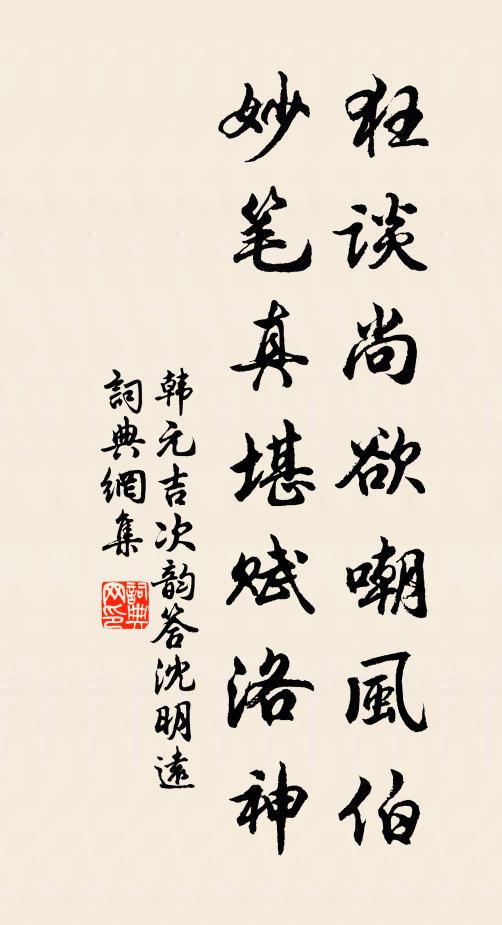 狂谈尚欲嘲風伯
妙笔真堪赋洛神
韩元吉次韵答沈明遠
詞典網集
詞典網印